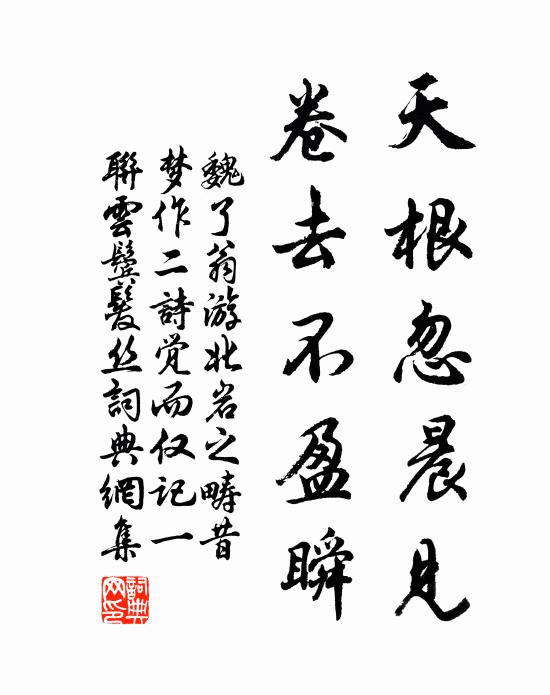 天根忽晨見
卷去不盈瞬
魏了翁游北岩之疇昔
梦作二詩觉而仅記一
聯雲鬟鬓丝詞典網集
詞典网印